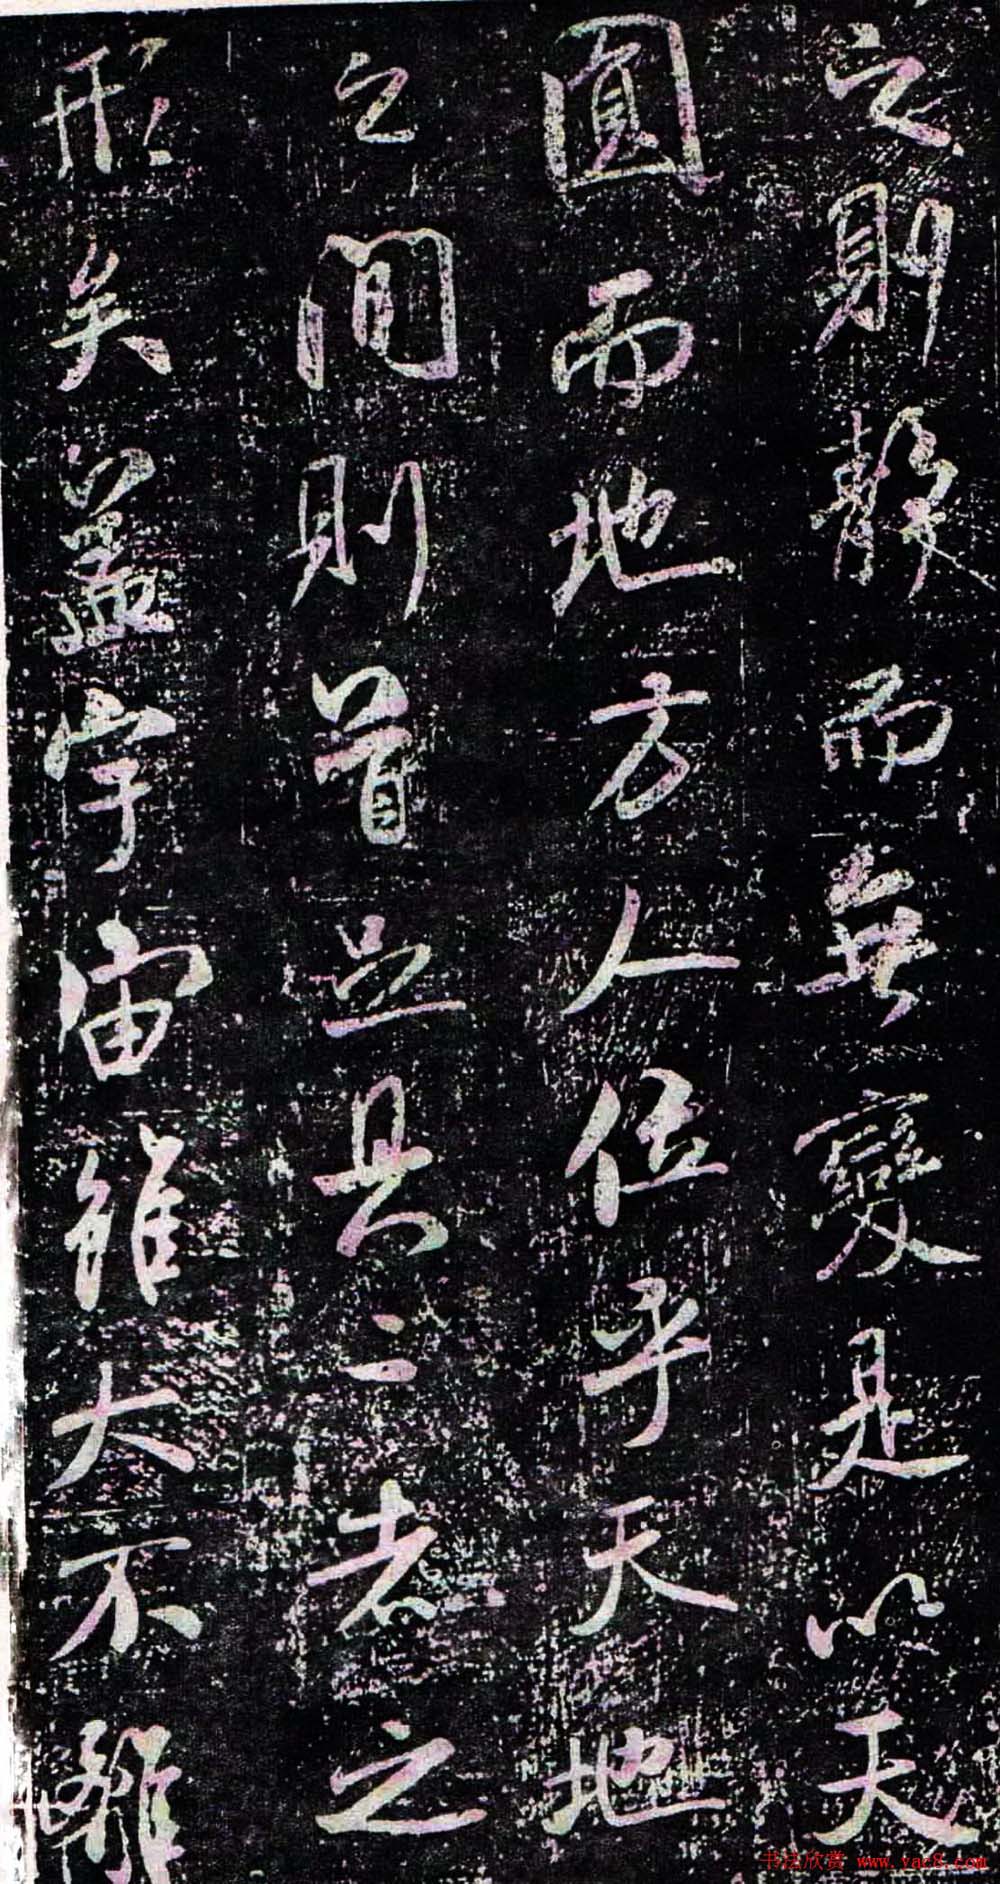 之則靜而無變是以天
圓而地方人位乎天地
之間則首足具二者之
形矣蓋宇宙雖大不離
书法欣赏 www.yac8.com